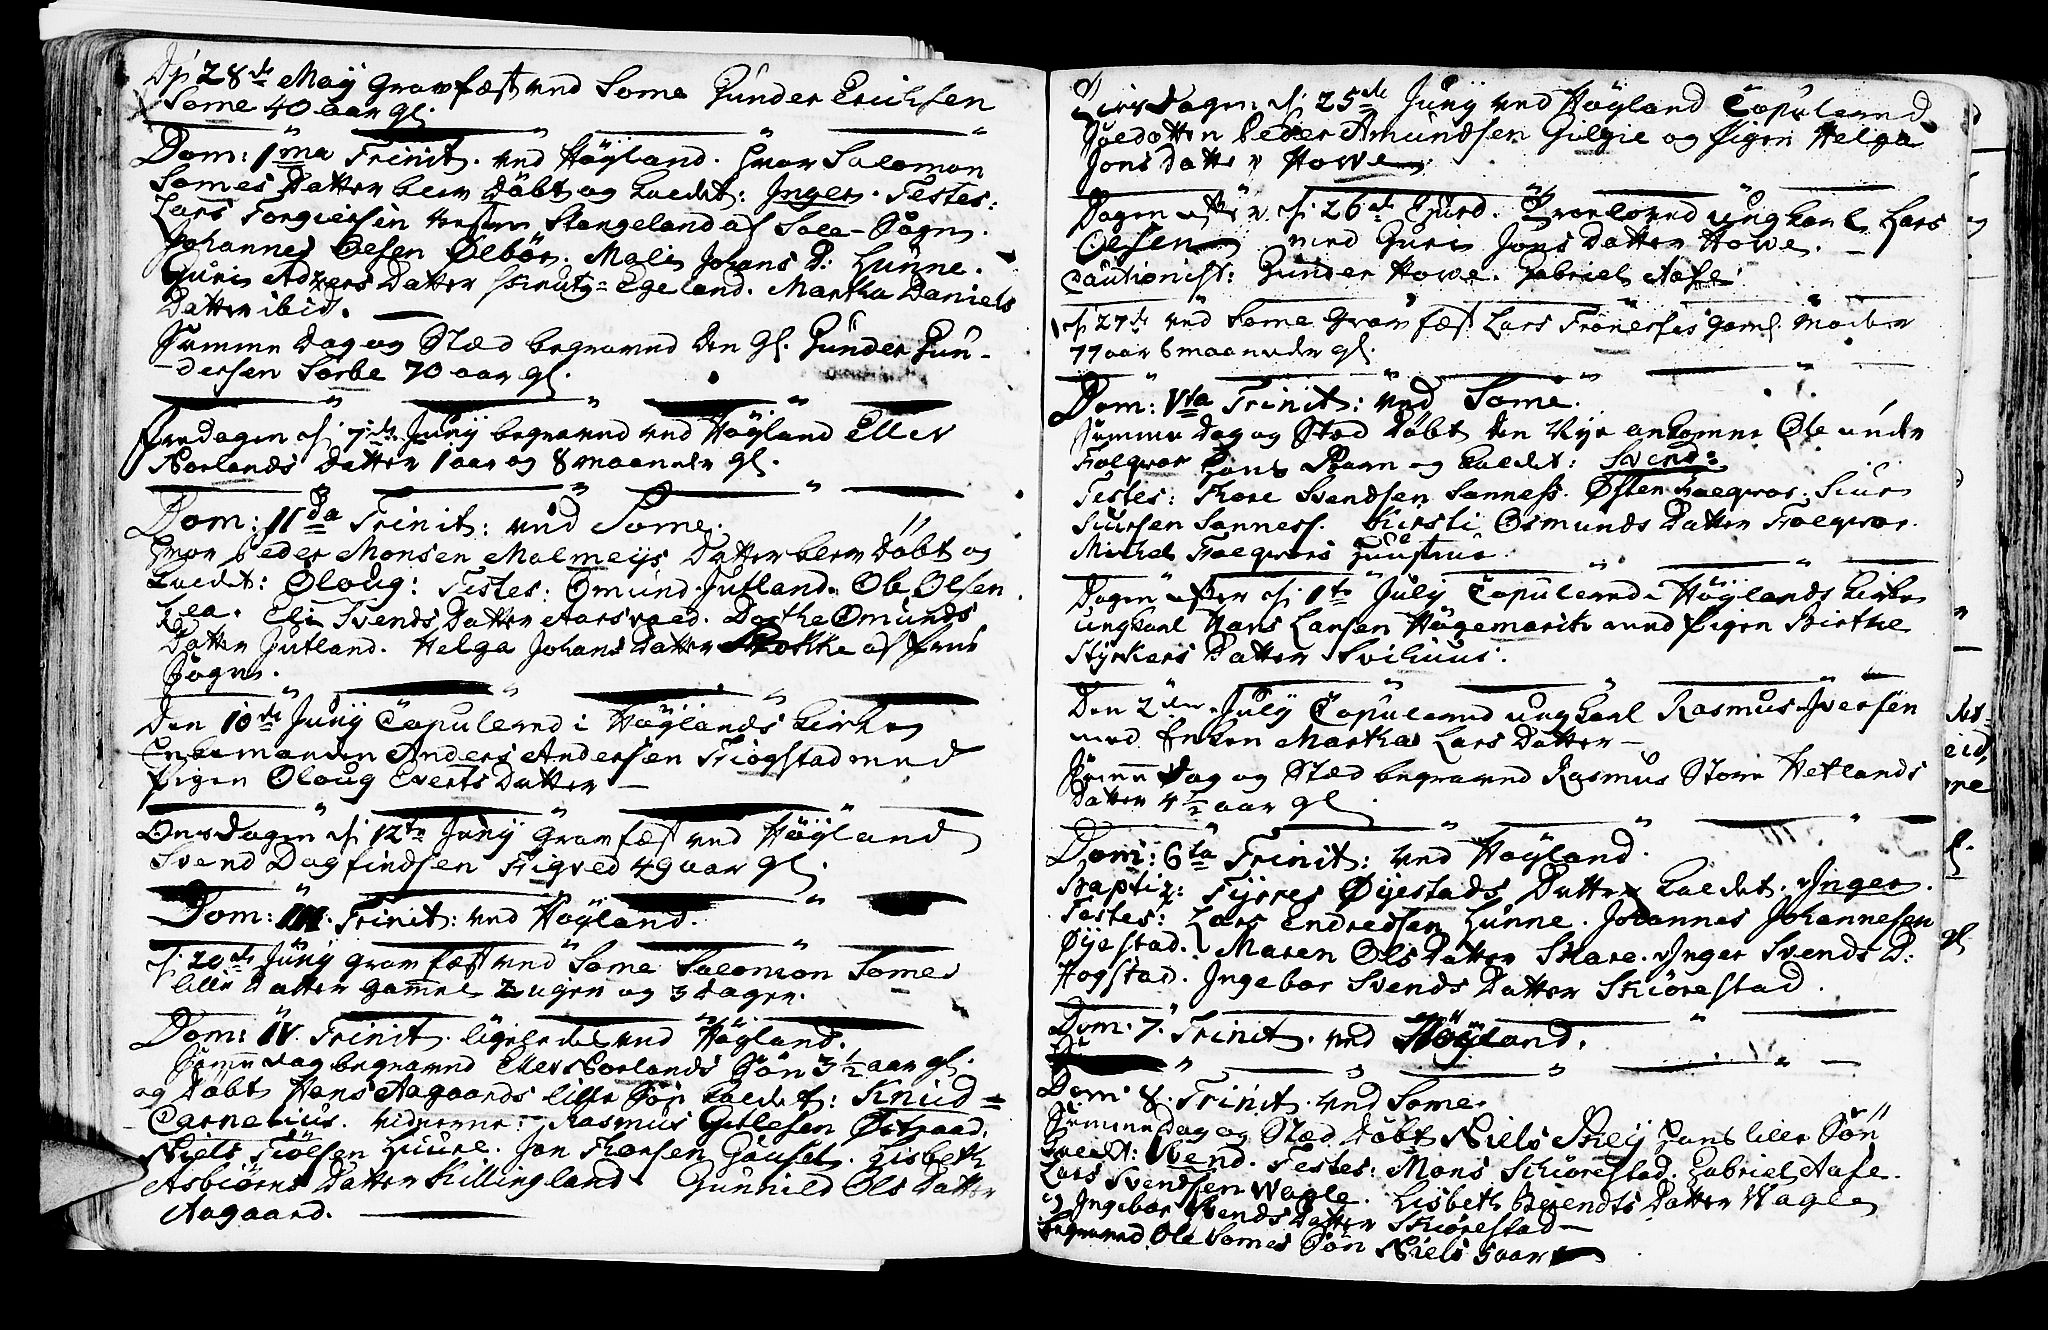 28de Maij Gravfæst ved Some Gunder Erichsen
Some 40 aar gl.
Dom: 1ma Trinit. ved Höyland. hvor Salomon
Somes Datter blev döbt og kaldet: Inger. Testes:
Lars Torgiersen Stangeland af Sole-Sogn.
Johannes Olsen Ölbör. Mali Johans D: Lunne.
Guri Adzers Datter Skrutz-Egeland. Martha Daniels
Datter ibid.
Samme Dag og Stæd begraved den gl. Gunder Gun-
-dersen Sörbe 70 aar gl.
Fredagen d. 7de Junij begraved ved Höyland Eller
Norlands Datter 1 aar og 8 maaneder gl.
Dom: IIda Trinit: ved Some.
hvor Peder Monsen Malmeijs Datter blev döbt og
kaldet: Oloug: Testes: Omund Jutland. Ole Olsen
Lea. Eli Svends Datter Aarsvoed. Dorthe Omunds
Datter Jutland. Helga Johans Datter Stokke af
Sogn.
Den 10de Junij Copulered i Höylands kirke
Enkemanden Anders Andersen Friogstad med
Pigen Oloug Everts Datter —
Onsdagen d. 12te Junij Gravfæst ved Höyland
Svend Dagfindsen Trigved 49 aar gl.
Dom: III. Trinit: ved Höyland.
d. 20de Junij gravfæst ved Some Salomon Somes
lille Datter gamel 2 uger og 3 dager.
Dom: IV. Trinit. ligeledes ved Höyland.
Samme dag begraved Eller Norlands Sön 3½ aar gl.
og Döbt Hans Aagaards lille Sön kaldet: Knud =
Carnelius. vidnerne: Rasmus Gitlesen Östraad.
Niels Tiölsen Luure. Jon Thorsen Gausel. Lisbeth
Asbiörns Datter Killingland. Gunhild Ols Datter
Aagaard.
Tirsdagen d. 25de Junij ved Höyland Copulered
Peder Amundsen Gilgie og Pigen Helga
Jons Datter Howe.
Dagen efter d. 26de Troloved ungkarl Lars
Olsen med Guri Jons Datter Howe.
Cautionist: Gunder Howe. Gabriel Aase.
d. 27de ved Some Gravfæst Lars Trönes gaml. Moder
77 aar 6 maaneder gl.
Dom: Vta Trinit: ved Some.
Samme Dag og Stæd Döbt den Nye ankomne Ole under
Foelqvor hans Barn og kaldet: Svend:
Testes: Thore Svendsen Sanness. Östen Foelqvor. Siur
Siursen Sanness. Kirsti Osmunds Datter Foelqvor.
Michel Foelqvors Hustrue.
Dagen efter d. 1te Julij Copulered i Höylands kirke
ungkarl Hans Larsen Högemark med Pigen Birthe
Styrkers Datter Svihuus.
Den 2den Julij Copulered ungkarl Rasmus Iversen
med Enken Martha Lars Datter —
Samme Dag og Stæd begraved Rasmus Store Hetlands
Datter 4½ aar gl.
Dom: 6ta Trinit: ved Höyland.
Baptiz: Tijeres Öyestads Datter kaldet. Inger.
Testes: Lars Endredsen Lunne. Johannes Johannesen
Öyestad. Maren Ols Datter Skare. Inger Svends D:
Hogstad. Ingebor Svends Datter Skiörestad.
Dom: 7. Trinit. ved Höyland.
Dom: 8. Trinit. ved Some.
Samme dag og Stæd Döbt Niels Skeij hans lille Sön
kaldet: Svend. Testes: Mons Skiörestad. Gabriel Aase.
Lars Svendsen Wagle. Lisbeth Bendts Datter Wagle
og Ingebor Svends Datter Skiörestad —
begraved Ole Somes Sön Niels 5 aar